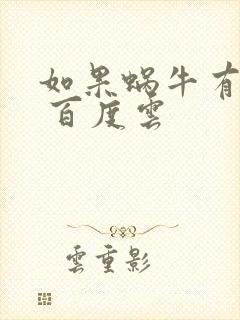 如果蜗牛有
百度雲
雲重影